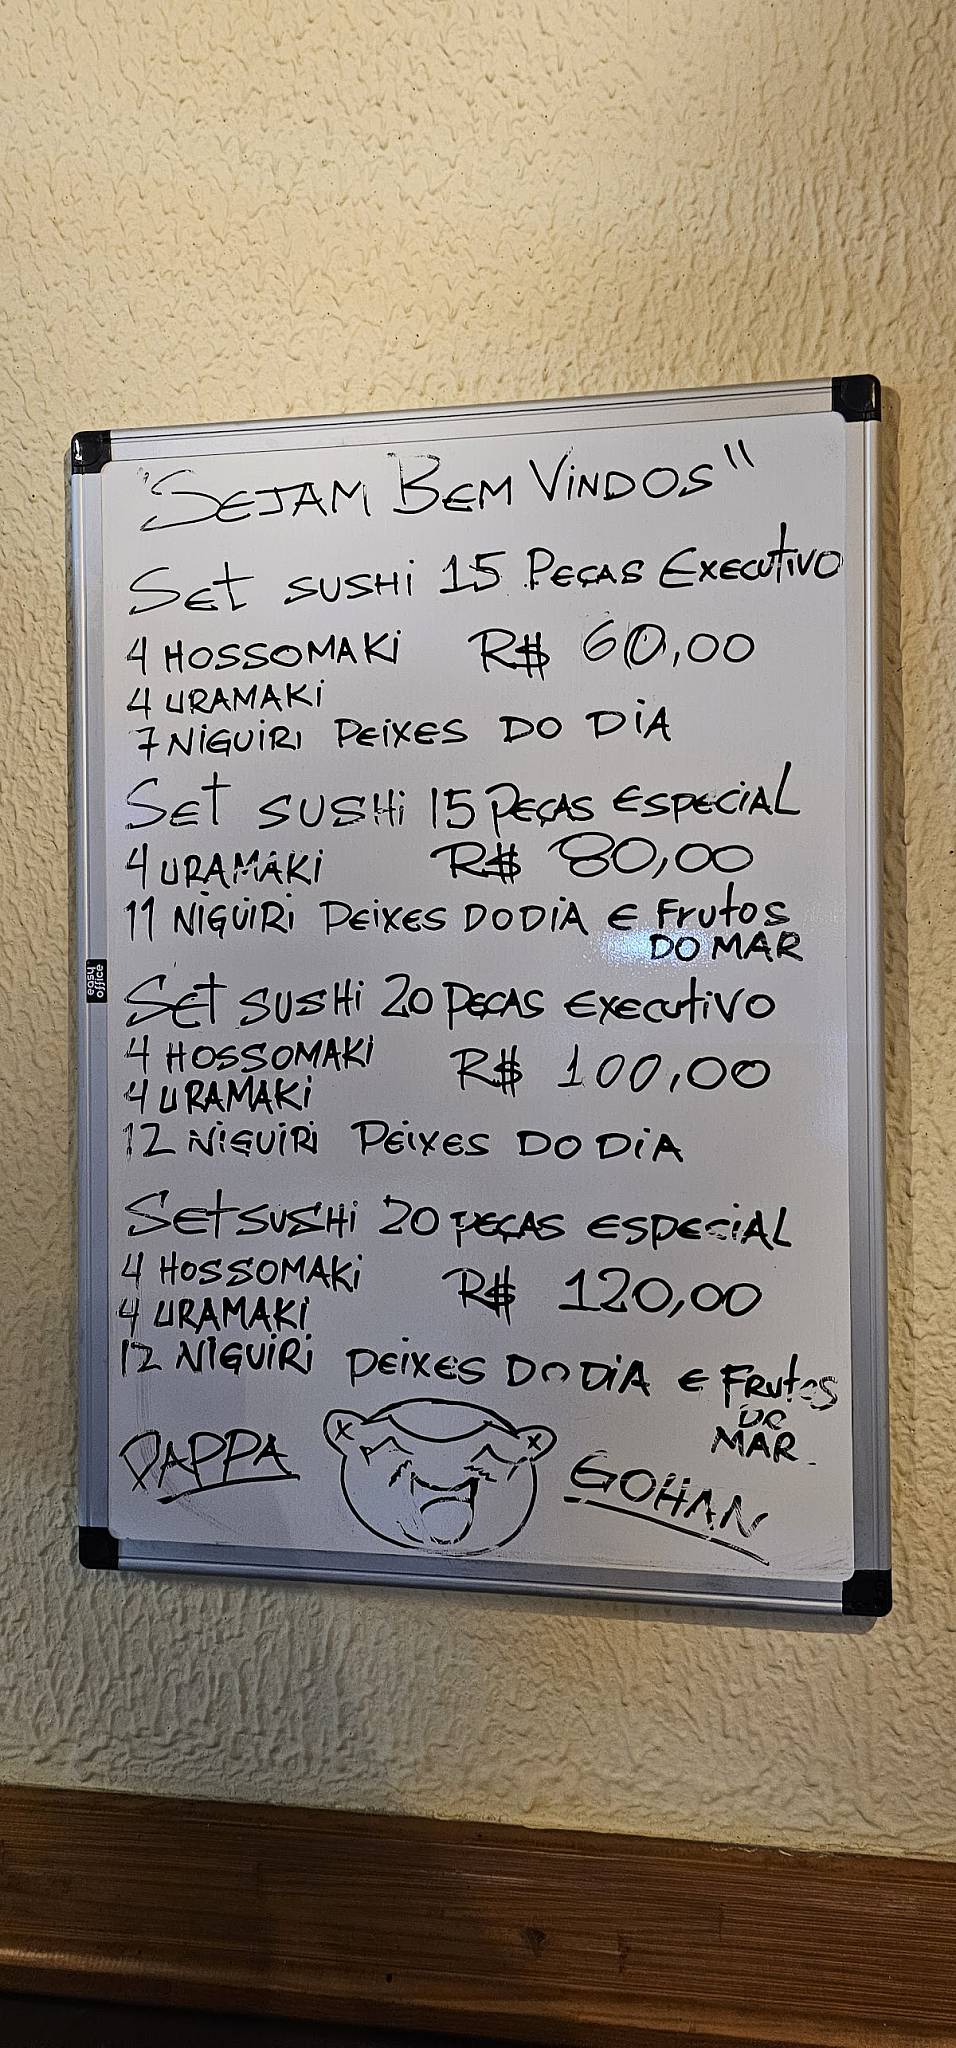 "SEJAM BEM VINDOS"
SET SUSHI 15 PEÇAS EXECUTIVO
4 HOSSOMAKI R$ 60,00
4 URAMAKI
7 NIGUIRI PEIXES DO DIA
SET SUSHI 15 PEÇAS ESPECIAL
4 URAMAKI R$ 80,00
11 NIGUIRI PEIXES DO DIA E FRUTOS
DO MAR
SET SUSHI 20 PEÇAS EXECUTIVO
4 HOSSOMAKI R$ 100,00
4 URAMAKI
12 NIGUIRI PEIXES DO DIA
SET SUSHI 20 PEÇAS ESPECIAL
4 HOSSOMAKI R$ 120,00
4 URAMAKI
12 NIGUIRI PEIXES DO DIA E FRUTOS
DO
MAR
PAPPA GOHAN
easy
office